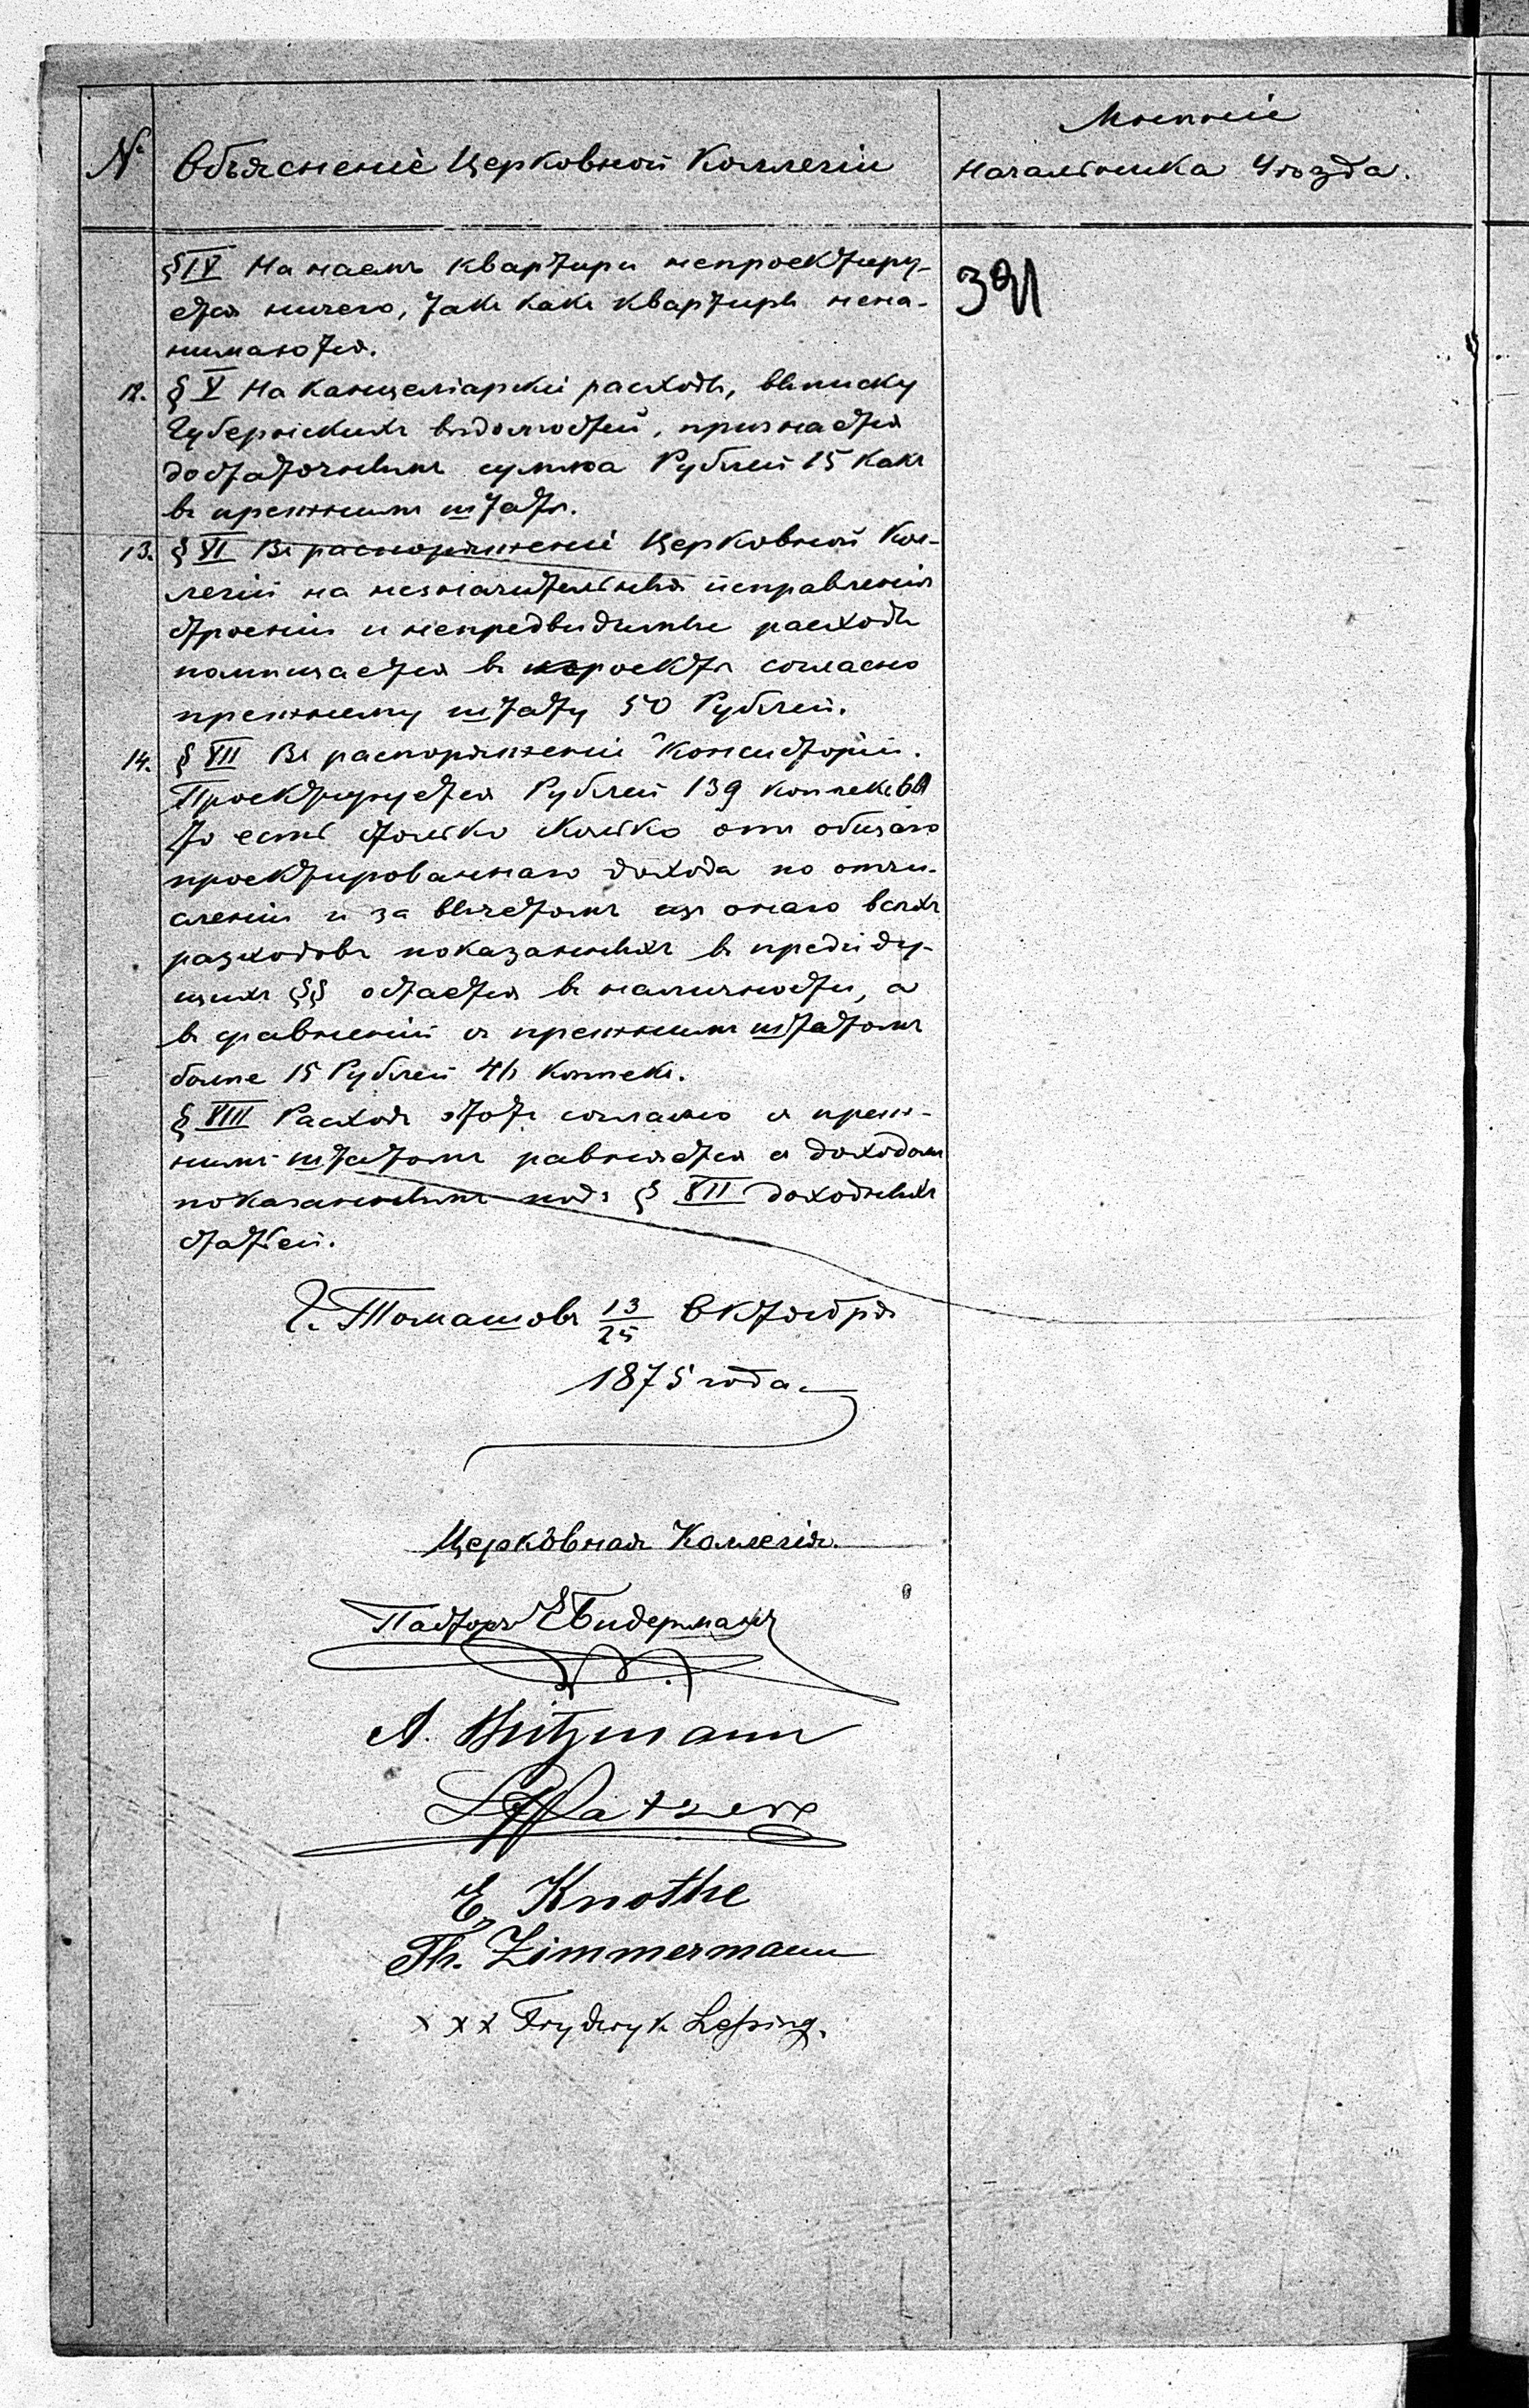 №
Объясненіе Церковной Коллегіи
Мнѣніе
Начальника Уѣзда.
§ IV На наемъ квартиры непроектиру-
ется ничего, такъ какъ квартиры нена-
нимаются.
391
12. § V На канцеляріарскіе расходы, выписку
Губернскихъ вѣдомостей, признается
достаточнымъ сумма Рублей 15 какъ
въ прежнимъ штатѣ.
13. § VI Въ распоряженіе Церковной Кол-
легіи на незначительныя исправленія
строеніи и непредвидимые расходы
помѣщается въ проектѣ согласно
прежнему штату 50 Рублей.
14. § VII Въ распоряженіи Консисторіи.
Проектируется Рублей 139 копѣекъ
то есть столько сколько отъ общаго
проектированнаго дохода по отчи-
сленіи и за вычетомъ изъ онаго всѣхъ
разходовъ показанныхъ въ предиду-
щихъ §§ остается въ наличности, а
въ сравненіи съ прежнимъ штатомъ
болѣе 15 Рублей копѣекъ.
§ VIII Расходъ этотъ согласно съ преж-
нимъ штатомъ равняется съ доходомъ
показаннымъ подъ § VII доходныхъ
статьей.
Г. Томашовъ 13/25 Октября
1875 года
Церковная Коллегія.
Пасторъ Бидерманъ
A. Hitzmann
E. Knothe
Th. Zimmermann
x x x Fryderyk Leßing.